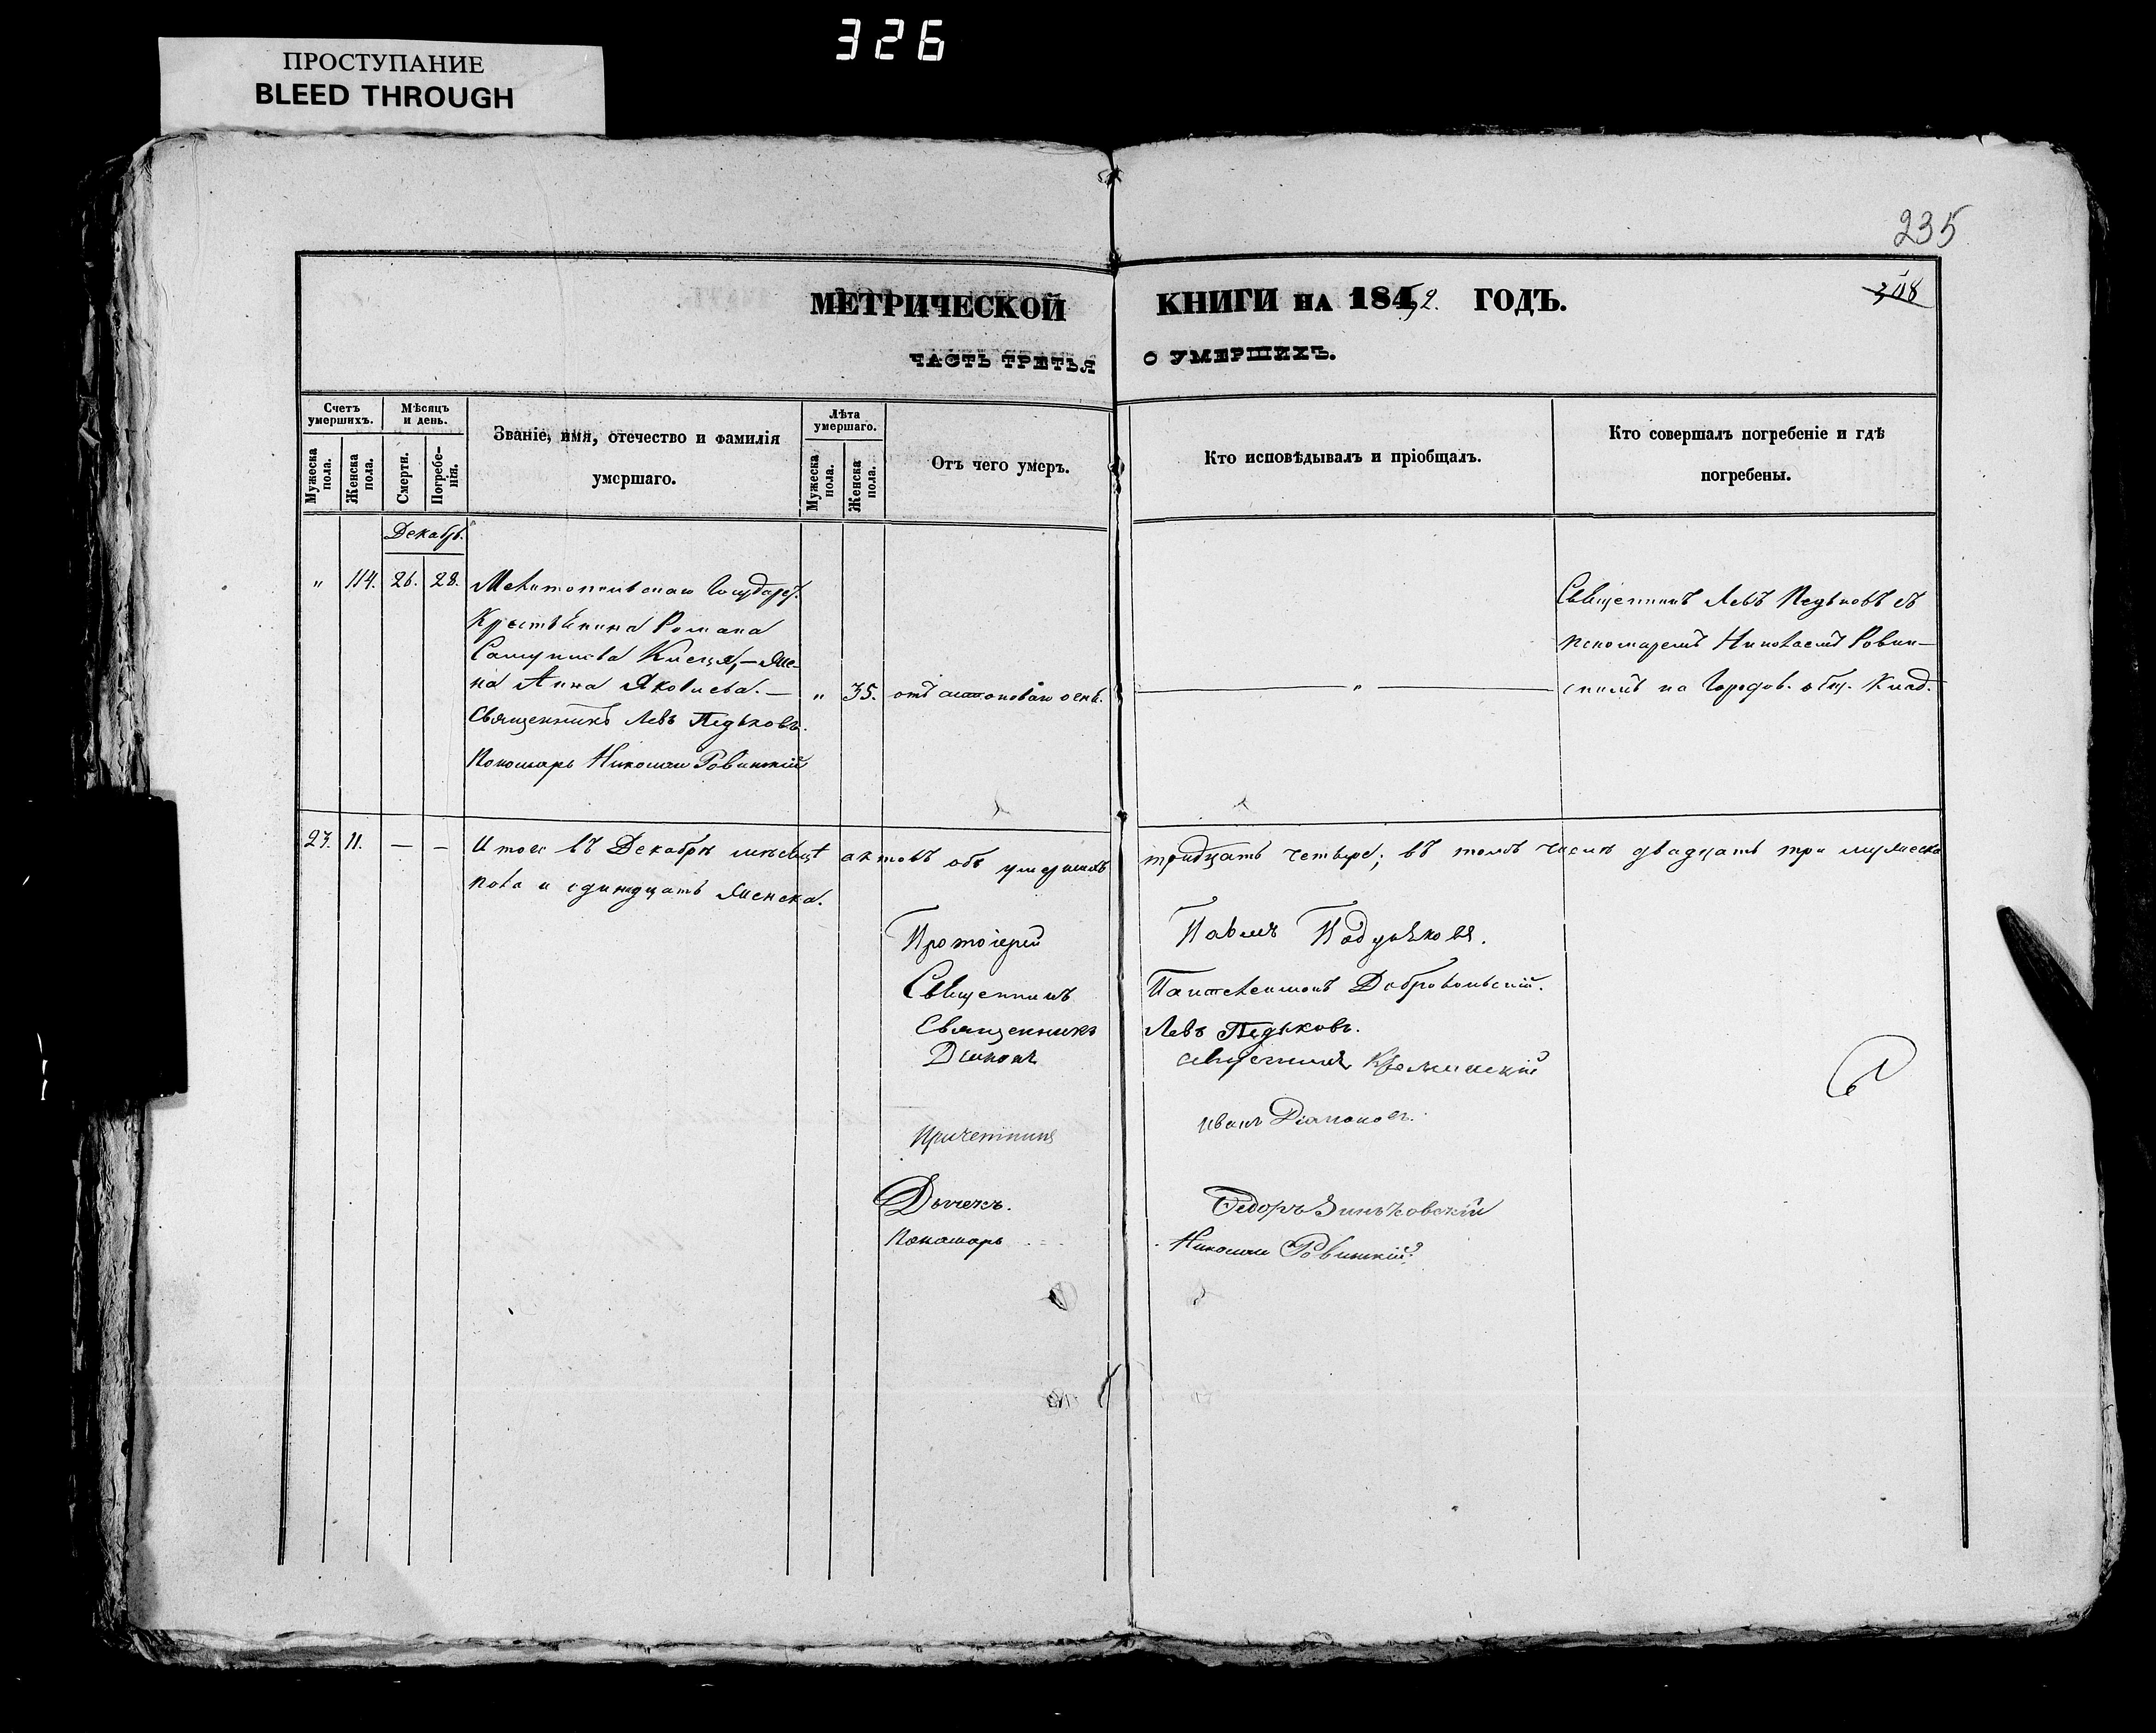 326
ПРОСТУПАНИЕ
BLEED THROUGH
235
308
МЕТРИЧЕСКОЙ КНИГИ на 1852. ГОДЪ.
ЧАСТЬ ТРЕТЬЯ О УМЕРШИХЪ.
Счетъ умершихъ.
Мужеска пола.
Женска пола.
Мѣсяцъ и день.
Смерти.
Погребе-нія.
Званіе, имя, отечество и фамилія умершаго.
Лѣта умершаго.
Мужеска пола.
Женска пола.
Отъ чего умеръ.
Кто исповѣдывалъ и пріобщалъ.
Кто совершалъ погребеніе и гдѣ погребены.
Декабр.
" 114. 26. 28.
Мелитопольскаго Государ.
Крестьянина Романа
Самуилова — Же-
на Анна Яковлева. —
" 35. отъ
— " —
Священникъ Левъ Педьковъ съ
пономаремъ Николаемъ Ровин-
скимъ на Городов. общ. Клад.
Священникъ Левъ Педьковъ.
Пономарь Николай Ровинскій
23. 11. — — Итого въ Декабрѣ мѣсяцѣ актовъ объ умершихъ тридцать четыре; въ томъ числѣ двадцать три мужеска
пола и одинадцать женска.
Протоіерей Павелъ
Священникъ Пантелеимонъ Добровольскій.
Священникъ Левъ Педьковъ.
Діаконъ
Причетникъ Иванъ Діаконов.
Дьячекъ. Ѳедоръ Зиньковскій
Пономарь Николай Ровинскій